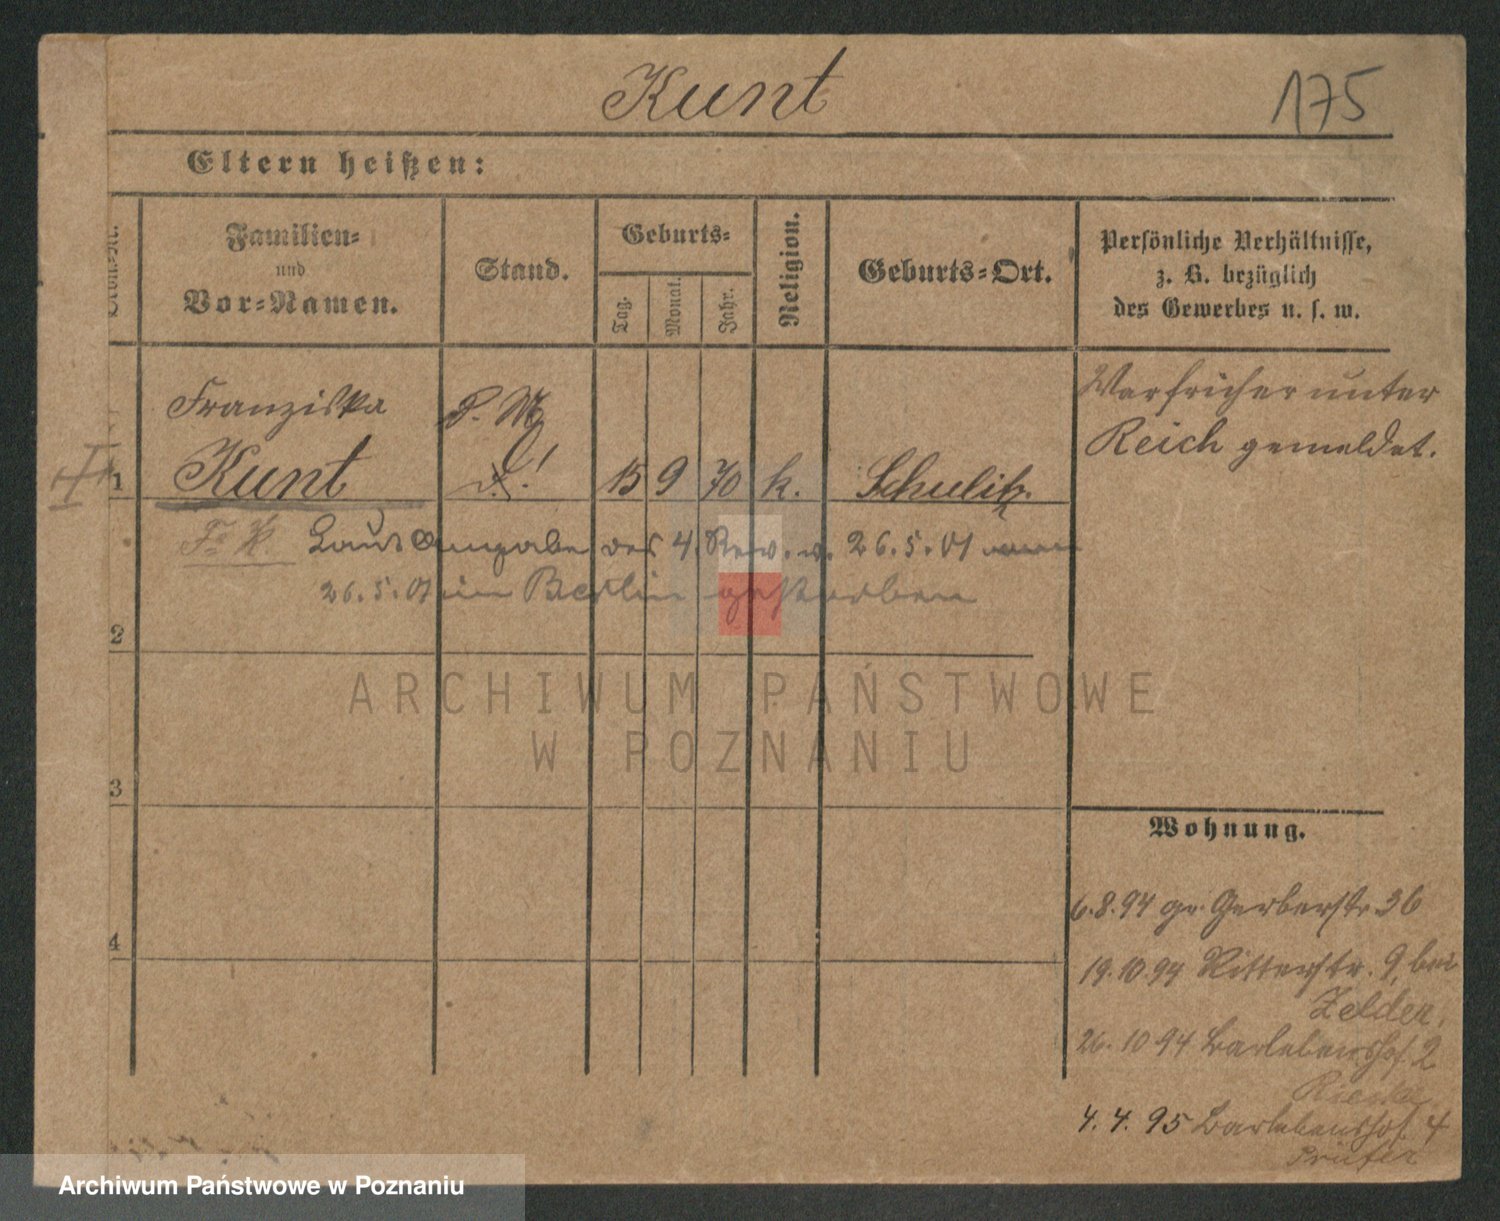 Kunt
175
Eltern heißen:
Familien-
und
Vor-Namen.
Stand.
Geburts-
Tag.
Monat.
Jahr.
Religion.
Geburts-Ort.
Persönliche Verhältnisse,
z. B. bezüglich
des Gewerbes u. s. w.
Franziska
P. M.
War früher unter
Reich gemeldet.
1
Kunt
15 9 70 k.
Schulitz.
Laut Angabe des 4. Rev. v. 26.5.01
26.5.01 in Berlin gestorben
2
ARCHIWUM PAŃSTWOWE
W POZNANIU
3
Wohnung.
6.8.94 gr. Gerberstr. 36
4
19.10.94 Ritterstr. 9, bei
Zelder.
26.10 94 Barlebenshof. 2
4.4.95 Barlebenshof. 4
Prüfer
Archiwum Państwowe w Poznaniu